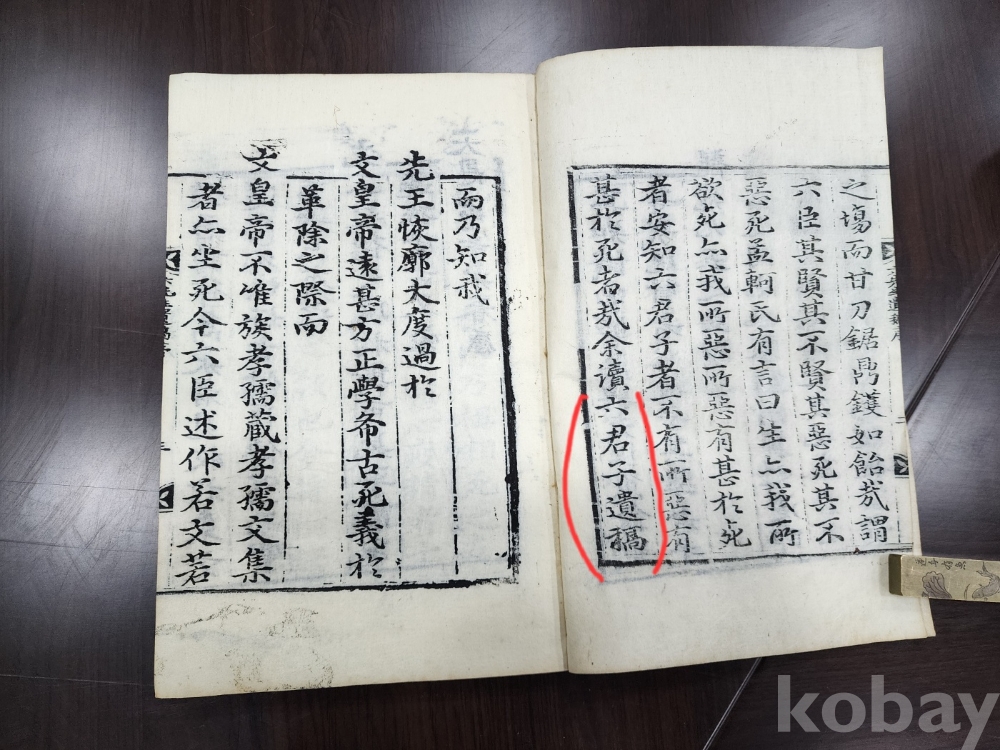 之場而甘刀鋸鼎鑊如飴哉謂
六臣其賢其不賢其惡死其不
惡死孟軻氏有言曰生亦我所
欲死亦我所惡所惡有甚於死
者安知六君子者不有所惡有
甚於死者哉余讀六君子遺稿
而乃知我
先王恢廓大度過於
文皇帝遠甚方正學希古死義於
革除之際而
文皇帝不唯族孝孺蔵孝孺文集
者亦坐死今六臣述作若文若
kobay